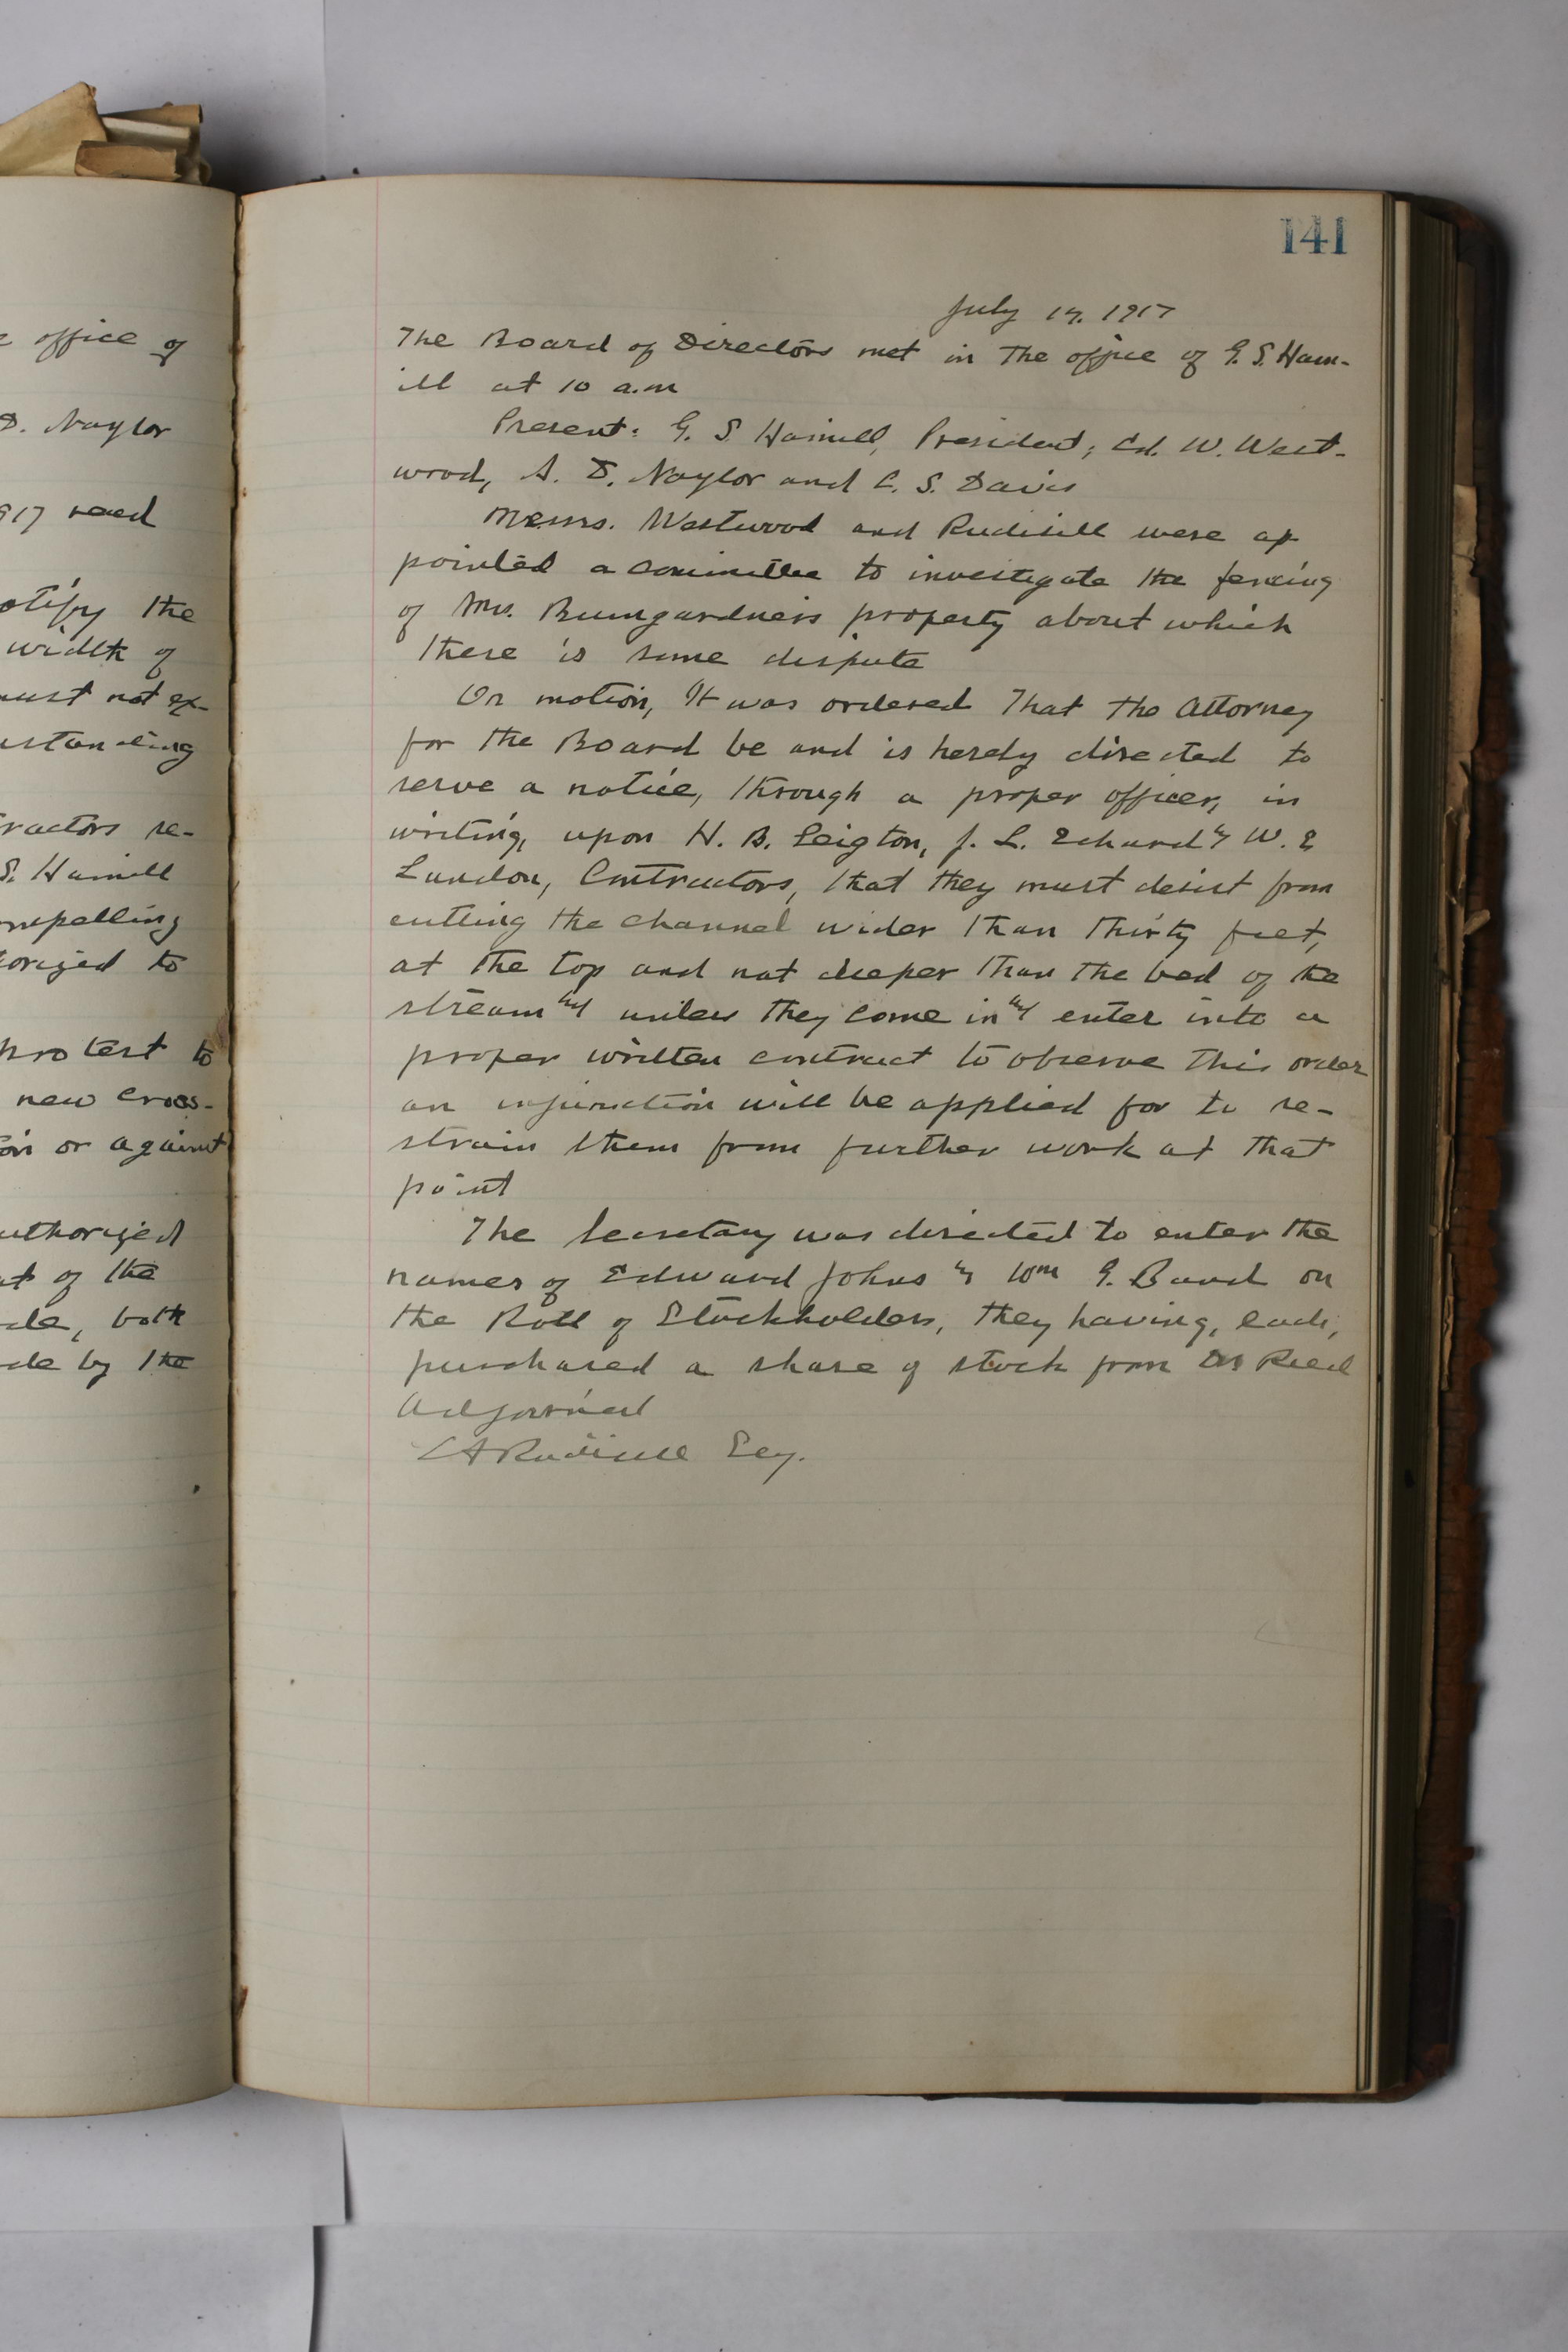 office of
D. Naylor
917 read
otify the
width of
must not ex-
standing
ractors re-
S. Hamill
mpelling
orized to
protest to
new cross-
or against
uthorized
of the
de, both
de by the
141
July 17. 1917
The Board of Directors met in the office of G. S. Ham-
ill at 10 a.m
Present: G. S. Hamill, President; Ed. W. West-
wood, A. D. Naylor and C. S. Davis
Messrs. Westwood and Rudisill were ap
pointed a committee to investigate the fencing
of Mrs. Bumgardners property about which
there is some dispute
On motion, It was ordered That the Attorney
for the Board be and is hereby directed to
serve a notice, through a proper officer, in
writing, upon H. B. Leigton, J. L. & W. E
Landon, Contractors, that they must desist from
cutting the channel wider than thirty feet,
at the top and not deeper than the bed of the
stream and unless they come in and enter into a
proper written contract to observe this order
an injunction will be applied for to re-
strain them from further work at that
point
The Secretary was directed to enter the
names of Edward Johns & Wm G. on
the Roll of Stockholders, they having, each,
purchased a share of stock from Reed
Adjourned
L A Rudisill Secy.